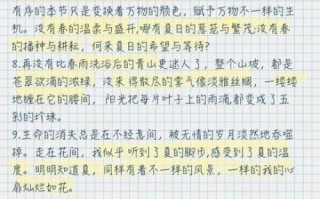 有序的季节只是变换着万物的颜色，赋予万物不一样的生
机。没有春的温柔与盛开,哪有夏日的葱茏与繁茂;没有春
的播种与耕耘，何来夏日的希望与等待?
8.再没有比春雨洗浴后的青山更迷人了，整个山坡，都是
苍翠欲滴的浓绿，没来得散尽的雾气像淡雅丝绸，一缕缕
地缠在它的腰间，阳光把每片叶子上的雨滴,都变成了五
彩的珍珠。
9.生命的消失总是在不经意间，被无情的岁月淡然地吞噬
掉。走在花间，我似乎听到了夏的脚步,感受到了夏的温
度。明明知道夏，同样有着不一样的风景，一样的我的心
扇灿烂如花。